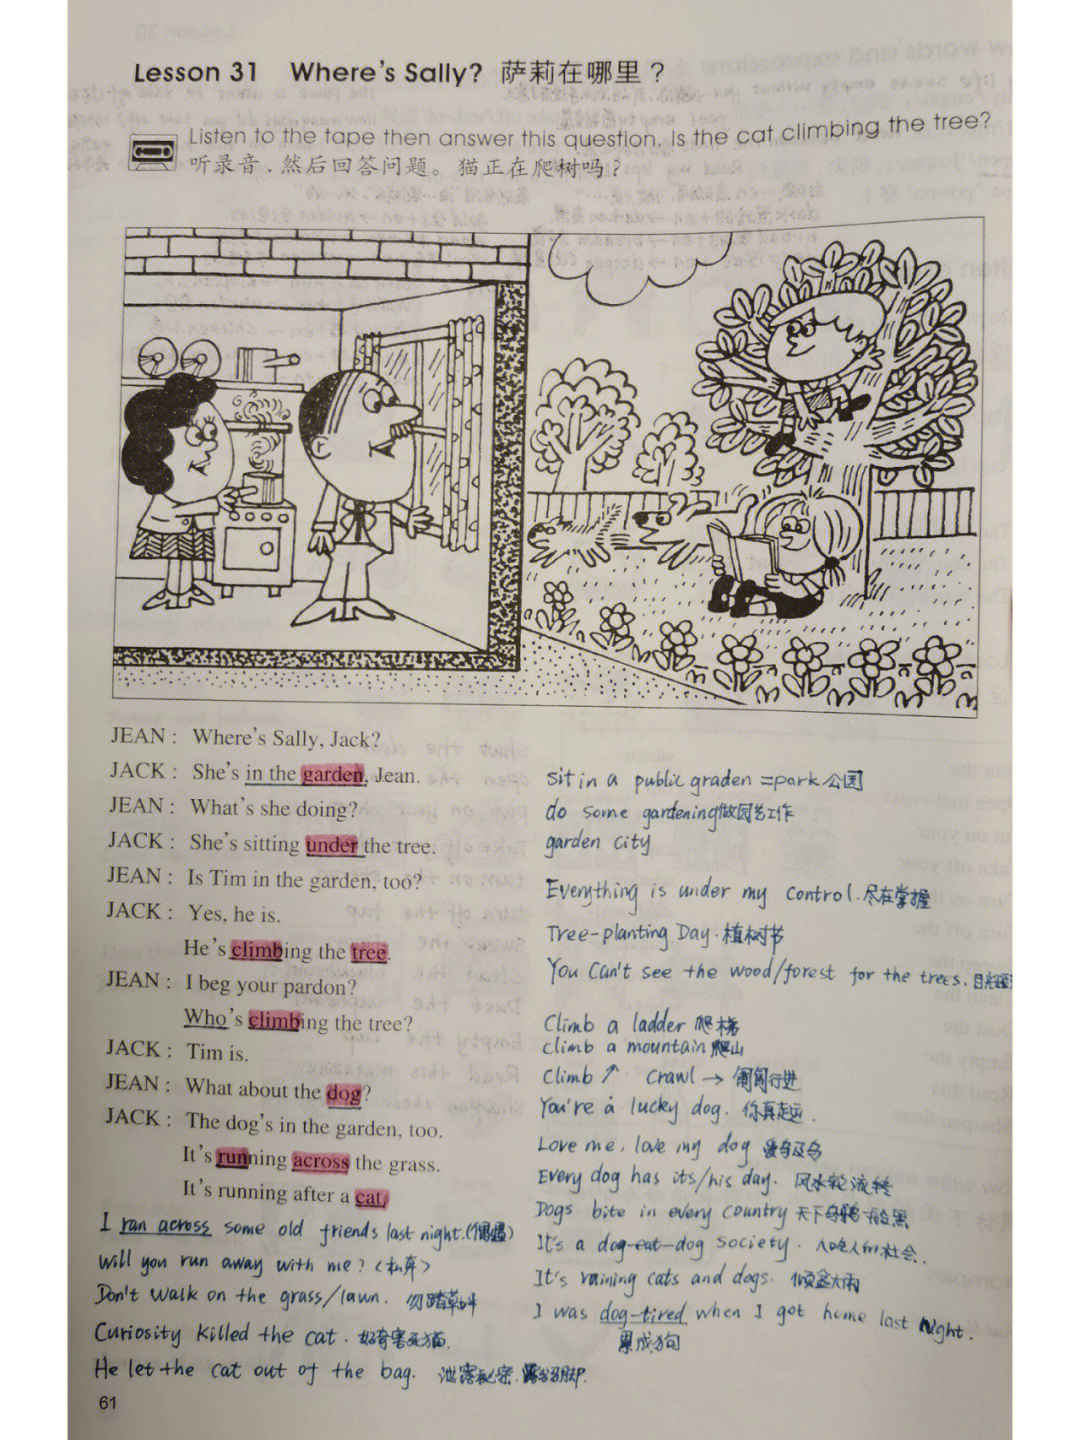 Lesson 31 Where's Sally? 萨莉在哪里？
Listen to the tape then answer this question. Is the cat climbing the tree?
听录音、然后回答问题。猫正在爬树吗？
JEAN : Where's Sally, Jack?
JACK : She's in the garden, Jean.
JEAN : What's she doing?
JACK : She's sitting under the tree.
JEAN : Is Tim in the garden, too?
JACK : Yes, he is.
He's climbing the tree.
JEAN : I beg your pardon?
Who's climbing the tree?
JACK : Tim is.
JEAN : What about the dog?
JACK : The dog's in the garden, too.
It's running across the grass.
It's running after a cat.
I ran across some old friends last night.(偶遇)
Will you run away with me? <私奔>
Don't walk on the grass/lawn. 勿踏草坪
Curiosity killed the cat. 好奇害死猫.
He let the cat out of the bag. 泄露秘密.露马脚.
sit in a public graden =park 公园
do some gardening做园艺工作
garden city
Everything is under my control.尽在掌握
Tree-planting Day.植树节
You can't see the wood/forest for the trees.
Climb a ladder 爬梯
climb a mountain 爬山
Climb ↗ crawl → 匍匐行进
You're a lucky dog. 你真走运.
Love me, love my dog 爱乌及乌
Every dog has its/his day. 风水轮流转
Dogs bite in every country 天下乌鸦一般黑
It's a dog-eat-dog society. 人吃人的社会.
It's raining cats and dogs. 倾盆大雨
I was dog-tired when I got home last night.
累成狗
61